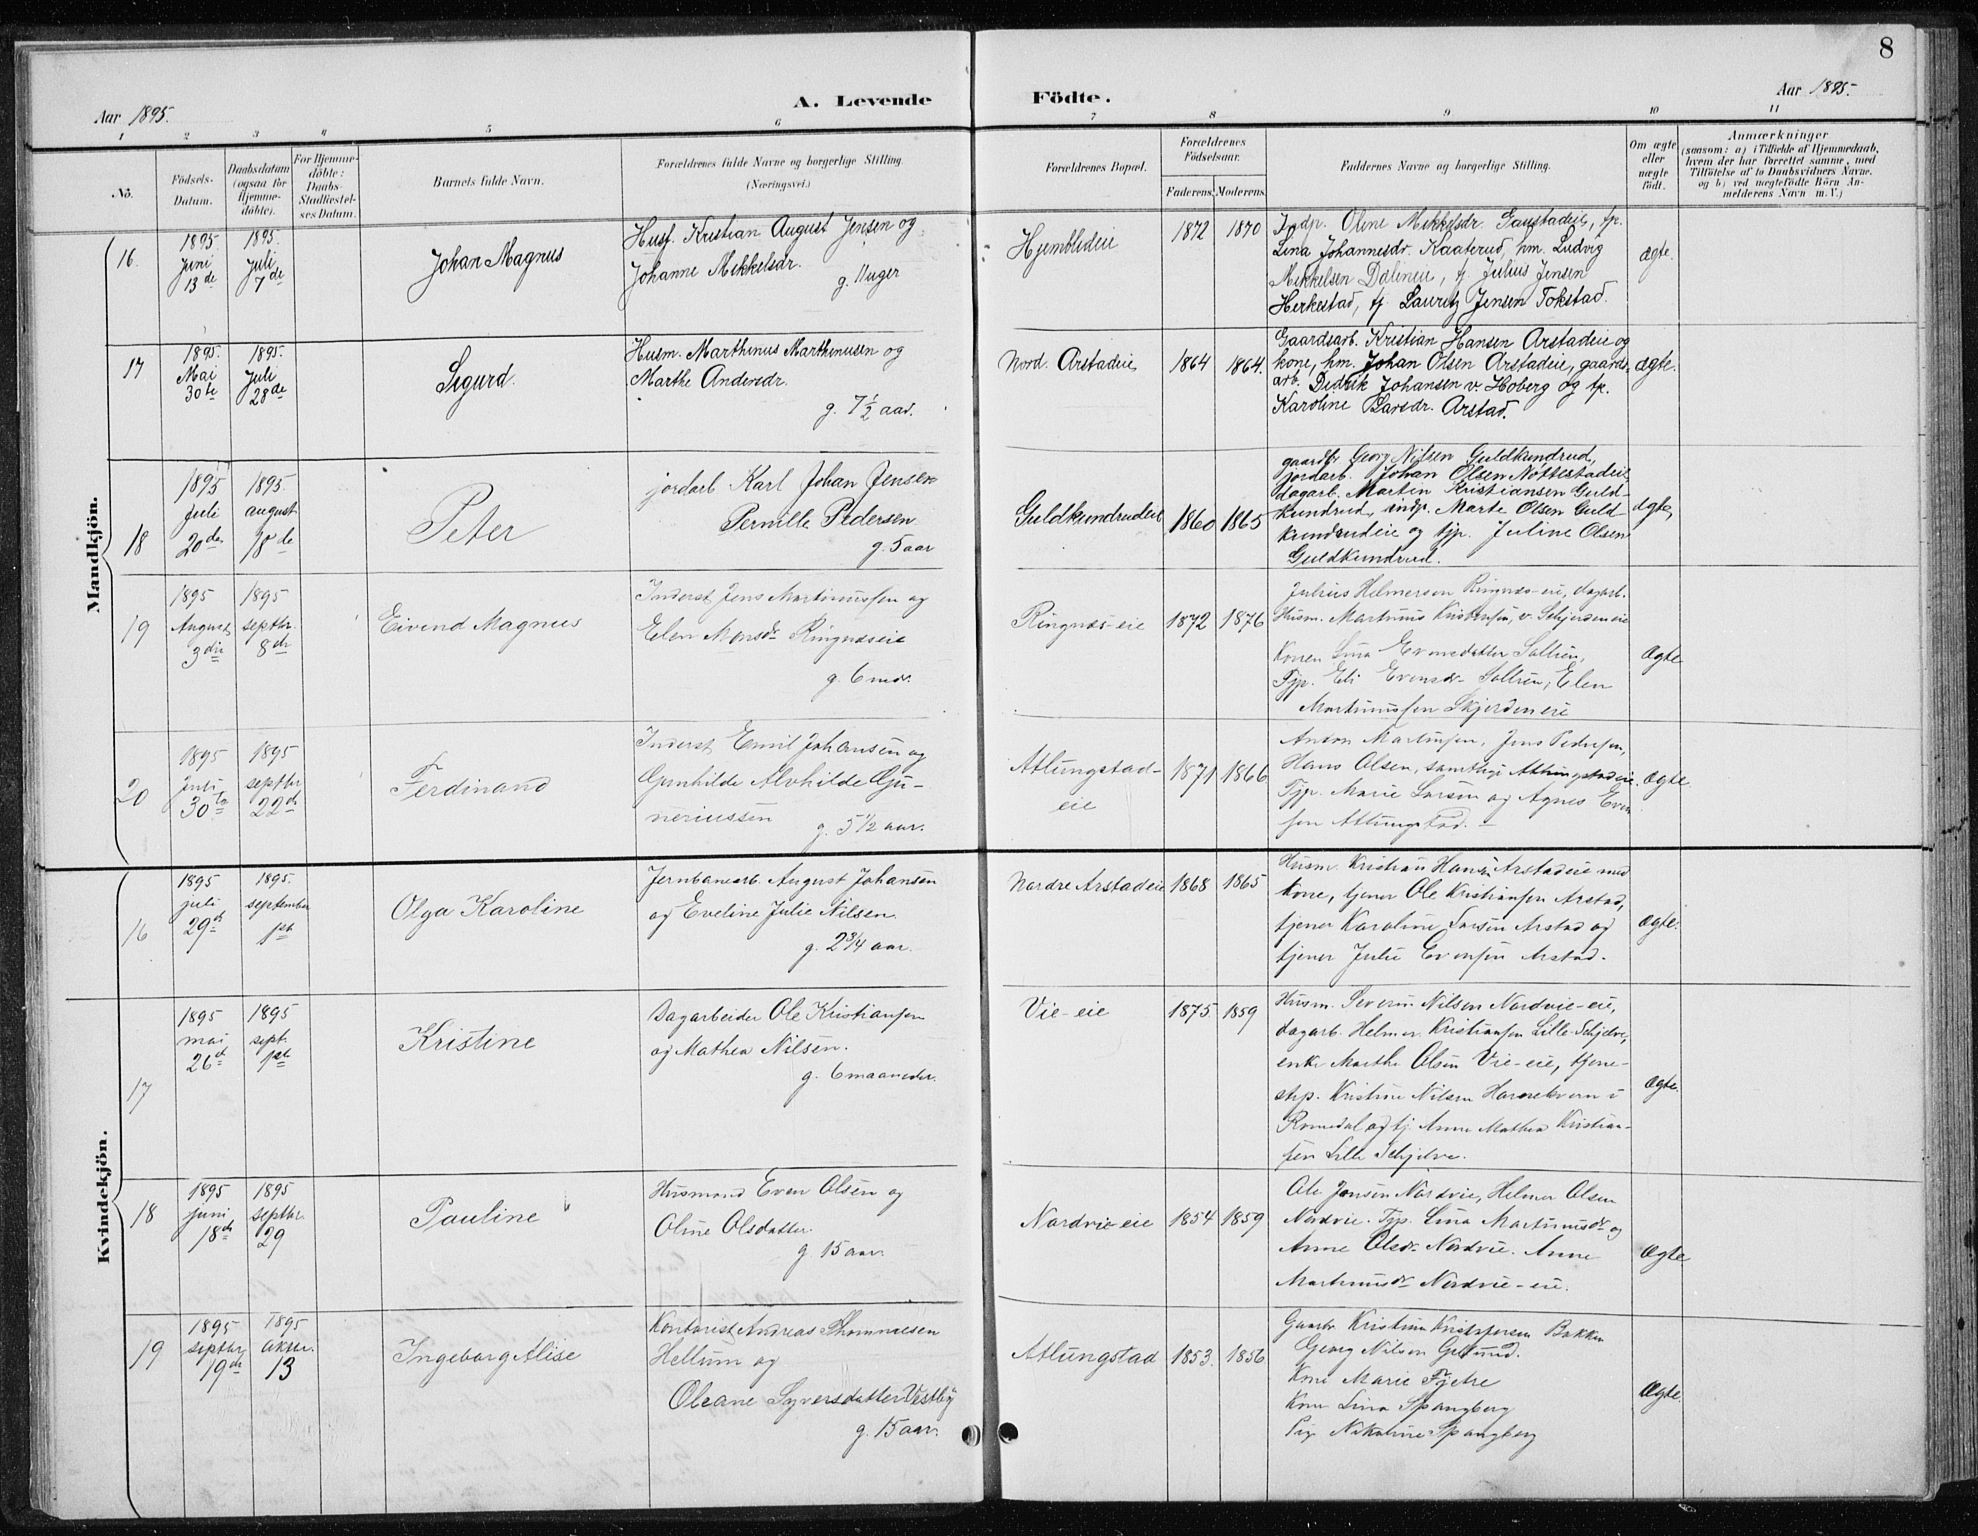 8
Aar 1895.
A. Levende
Födte.
Aar 1895.
1 2 3 4 5 6 7 8 9 10 11
No.
Födsels-Datum.
Daabsdatum (ogsaa for Hjemme-döbte).
For Hjemme-döbte: Daabs-Stadfæstel-ses Datum.
Barnets fulde Navn.
Forældrenes fulde Navne og borgerlige Stilling. (Næringsvei.)
Forældrenes Bopæl.
Forældrenes Födselsaar.
Faderens. Moderens.
Faddernes Navne og borgerlige Stilling.
Om ægte eller uægte födt.
Anmærkninger (saasom: a) i Tilfælde af Hjemmedaab, hvem der har forrettet samme, med Tilföielse af to Daabsvidners Navne, og b) ved uægtefödte Börn An-melderens Navn m. V.)
Mandkjön.
16.
1895 Juni 13de
1895. Juli 7de
Johan Magnus
Husf. Kristian August Jensen og
Johanne Mikkelsdr.
g. Uger
Hjemblideie
1872 1870
Indp. Oline Mikkelsdr. Gaustadeie, tp.
Lina Johannesdr. Kaaterud, hm. Ludvig
Mikkelsen Dalineie, tj. Julius Jensen
Herkestad, tj. Lauritz Jensen Tokstad.
ægte.
17
1895. Mai 30te
1895. Juli 28de
Sigurd.
Husm. Marthinus Marthinusen og
Marthe Andersdr.
g. 7 1/2 aar.
Nord. Arstadeie
1864 1864.
Gaardsarb. Kristian Hansen Arstadeie og
kone, hm. Johan Olsen Arstadeie, gaards-
arb. Didrik Johansen v. Hoberg og tp.
Karoline Larsdr. Arstad.
ægte.
18
1895 juli 20de
1895. august 18de
Peter
jordarb Karl Johan Jensen
Pernille Pedersen
g. 5 aar
Guldkundrudeie
1860 1865
gaardbr Georg Nilsen Guldkundrud,
jordarb. Johan Olsen Nöttestadeie,
dagarb. Martin Kristiansen Guld-
kundrud, indp. Marte Olsen Guld-
kundrudeie og tjp. Juline Olsen
Guldkundrud.
ægte,
19
1895 August 3die
1895 septbr. 8de
Eivend Magnus
Inderst Jens Martinussen og
Elen Monsdr Ringnæseie
g. 6 mdr.
Ringnæs-eie
1872 1876
Julius Helmersen Ringnæs-eie, dagarb.
Husm. Martinus Kristensen, v. Schjerdeneie
Konen Lina Evensdatter Soltun,
Tjp. Eli Evensdr Soltun, Elen
Martinussen Skjerdeneie
Ægte
20
1895 Juli 30te
1895 septbr 22de
Ferdinand
Inderst Emil Johansen og
Gunhilde Alvhilde Gju-
neriussen
g. 5 1/2 aar.
Atlungstad-
eie
1871 1866
Anton Martinsen, Jens Pedersen,
Hans Olsen, samtlige Atlungstadeie.
Tjp. Marie Larsen og Agnes Even
sen Atlungstad. –
Ægte
Kvindekjön.
16
1895 juli 29de
1895. september 1ste
Olga Karoline
Jernbanearb. August Johansen
og Eveline Julie Nilsen
g. 2 3/4 aar.
Nordre Arstadeie
1868 1865
Husm Kristian Hansen Arstadeie med
kone, tjener Ole Kristiansen Arstad,
tjener Karoline Larsen Arstad og
tjener Julie Evensen Arstad.
Ægte.
17
1895 mai 26de
1895 sept. 1ste
Kristine
Dagarbeider Ole Kristiansen
og Mathea Nilsen.
g. 6 maaneder.
Vie-eie
1875 1859
Husm. Severin Nilsen Nordvie-eie,
dagarb. Helmer Kristiansen Lille-Schjelve,
enke Marthe Olsen Vie-eie, tjene-
step. Kristine Nilsen Harmekvern i
Romedal og tj. Anne Mathea Kristian-
sen Lille Schjelve.
Ægte.
18
1895 juni 18de
1895 septbr. 29
Pauline
Husmand Even Olsen og
Oline Olsdatter.
g. 15 aar.
Nordvie-eie
1854 1859
Ole Jensen Nordvie, Helmer Olsen
Nordvie. Tjp. Lina Martinusdr og
Anne Olsdr Nordvie. Anne
Martinusdr Nordvie-eie.
Ægte
19
1895 septbr 19de
1895 oktbr. 13
Ingeborg Alise
Kontorist Andreas Thommesen
Hellum og
Oleane Syversdatter Vestby
g. 15 aar.
Atlungstad
1853. 1856
Gaardbr Kristian Kristofersen Bakken
Georg Nilsen
Kone Marie Fjetre
Kone Lina Spangberg
Pige Nikoline Spangberg
Ægte